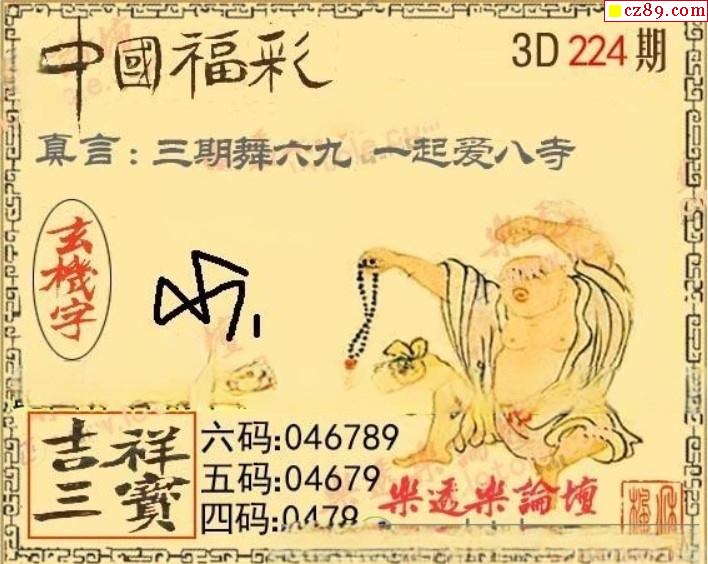 cz89.com
中國福彩
3D 224 期
真言：三期舞六九 一起爱八寺
玄機字
吉祥三寶
六码:046789
五码:04679
四码:0479
樂透樂論壇